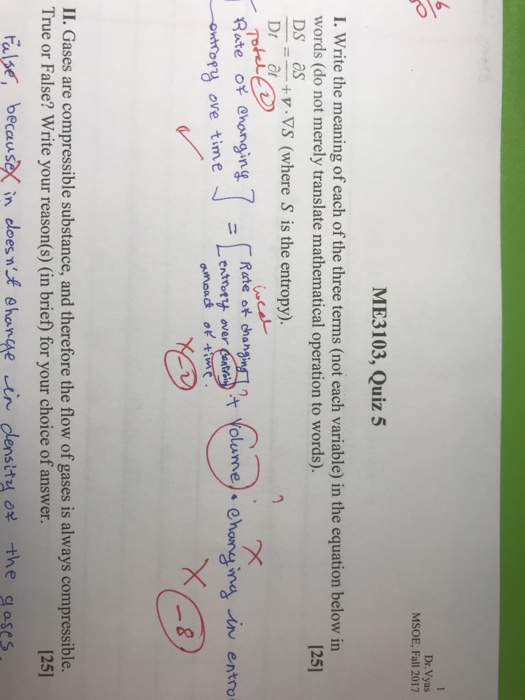 1
Dr. Vyas
MSOE, Fall 2017
ME3103, Quiz 5
I. Write the meaning of each of the three terms (not each variable) in the equation below in
words (do not merely translate mathematical operation to words). [25]
DS/Dt = ∂S/∂t + v·∇S (where S is the entropy).
Total (-2)
[Rate of changing entropy ove time] = [Rate of changing entropy over amoact of time.] + Volume · changing in entro
local
?
?
X -2
X
X -8
II. Gases are compressible substance, and therefore the flow of gases is always compressible.
True or False? Write your reason(s) (in brief) for your choice of answer. [25]
False, because in doesn't change in density of the gases.